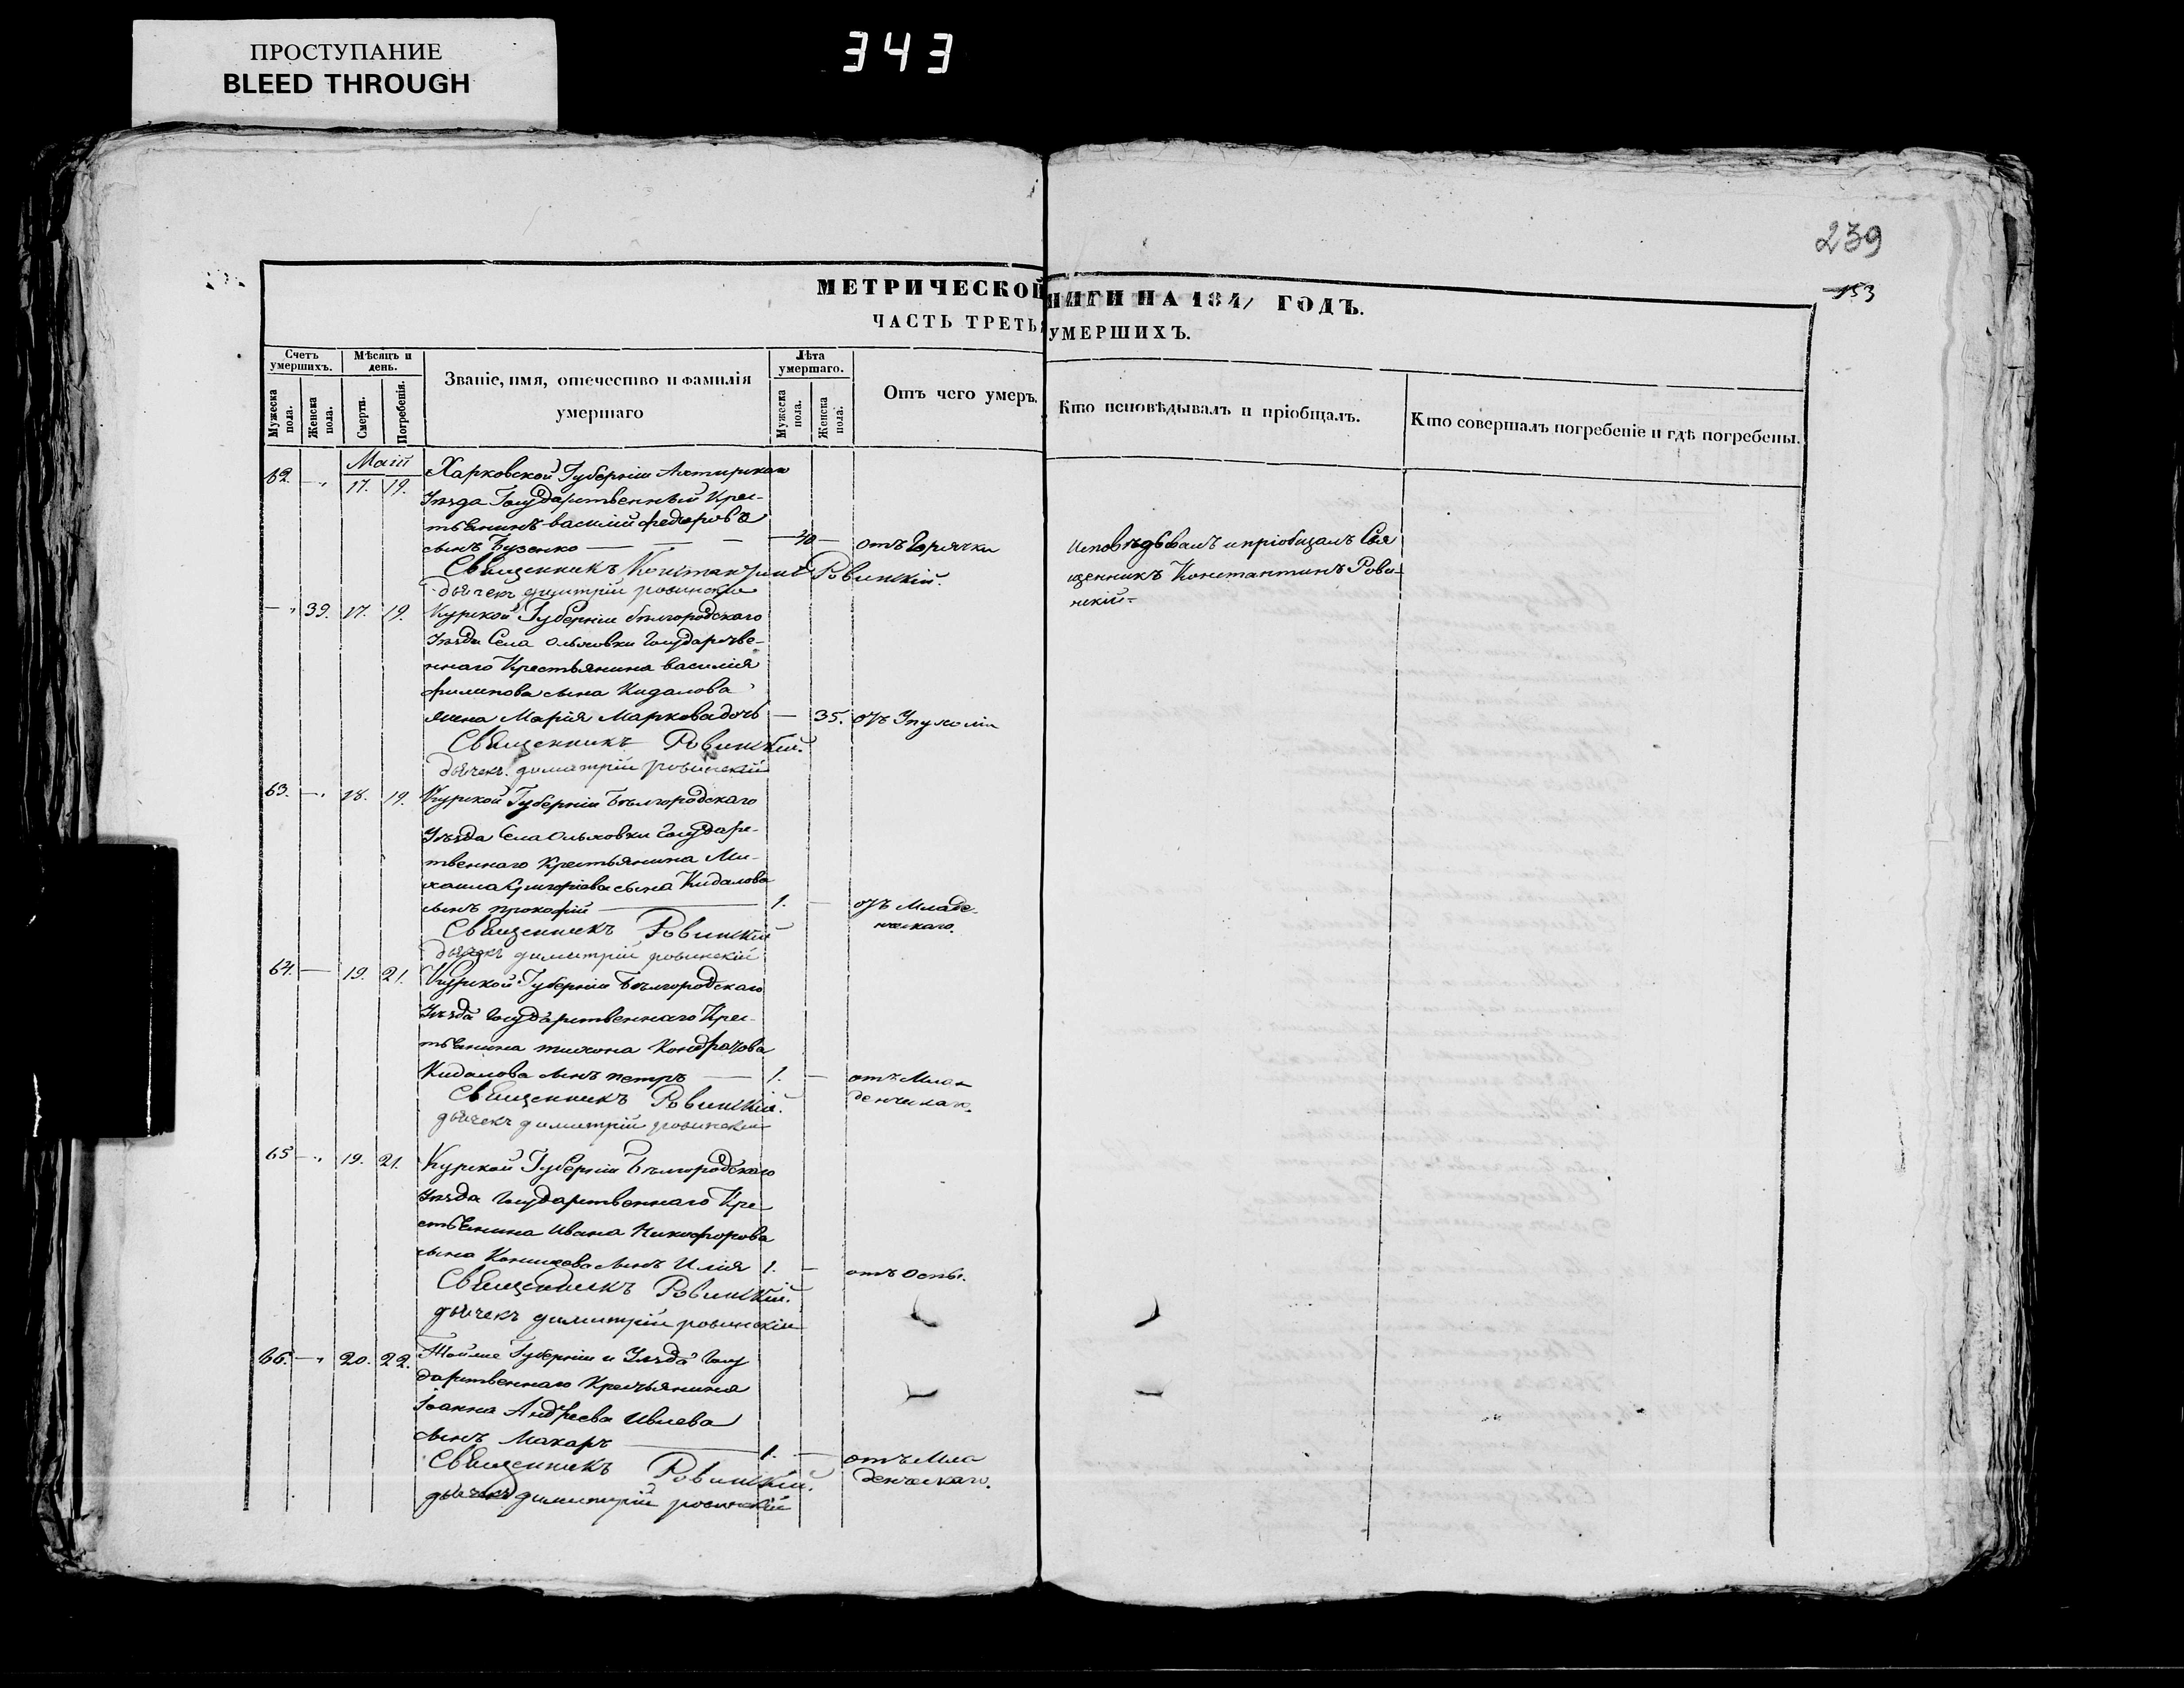 ПРОСТУПАНИЕ
BLEED THROUGH
343
239
153
МЕТРИЧЕСКОЙ НИГИ НА 1841 ГОДЪ.
ЧАСТЬ ТРЕТЬ УМЕРШИХЪ.
Счетъ умершихъ.
Мѣсяцъ и день.
Званіе, имя, отечество и фамилія умершаго
Лѣта умершаго.
Отъ чего умеръ.
Кто исповѣдывалъ и пріобщалъ.
Кто совершалъ погребеніе и гдѣ погребены.
Мужеска пола.
Женска пола.
Смерти.
Погребенія.
Мужеска пола.
Женска пола.
Маій
62. — 17. 19. Харковской Губерніи Ахтирскаго
Уѣзда Государственный Крес-
тьянинъ василій федоровъ
сынъ Бузенко — 40 — отъ Горячки
Исповѣдывалъ и пріобщалъ Свя
щенникъ Константинъ Рови-
нскій
Священникъ Константинъ Ровинскій.
дьячекъ димитрій ровинскій
— 39. 17. 19. Курской Губерніи бѣлгородскаго
Уѣзда Села Ольховки Государстве-
ннаго Крестьянина василія
филипова сына Кидалова
жена Марія Маркова дочь — 35. отъ Опухоли
Священникъ Ровинскій.
дьячекъ димитрій ровинскій
63. — 18. 19. Курской Губерніи Бѣлгородскаго
Уѣзда Села Ольховки Государс-
твеннаго Крестьянина Ми-
хаила Григоріева сына Кидалова
сынъ прокофій — 1. — отъ Младе-
нческаго.
Священникъ Ровинскій
дьячекъ димитрій ровинскій
64. — 19. 21. Курской Губерніи Бѣлгородскаго
Уѣзда Государственнаго Крес-
тьянина тихона Кондратова
Кидалова сынъ петръ — 1. — отъ Мла
денческаго.
Священникъ Ровинскій.
дьячекъ димитрій ровинскій
65 — 19. 21. Курской Губерніи Бѣлгородскаго
Уѣзда Государственнаго Кре
стьянина Ивана Никифорова
сына сынъ Илія 1. — отъ Оспы.
Священникъ Ровинскій.
дьячекъ димитрій ровинскій
66. — 20. 22. Тойже Губерніи и Уѣзда Госу
дарственнаго Крестьянина
Іоанна Андреева Ивлева
сынъ Макаръ — 1. — отъ Мла
денческаго.
Священникъ Ровинскій.
дьячекъ димитрій ровинскій